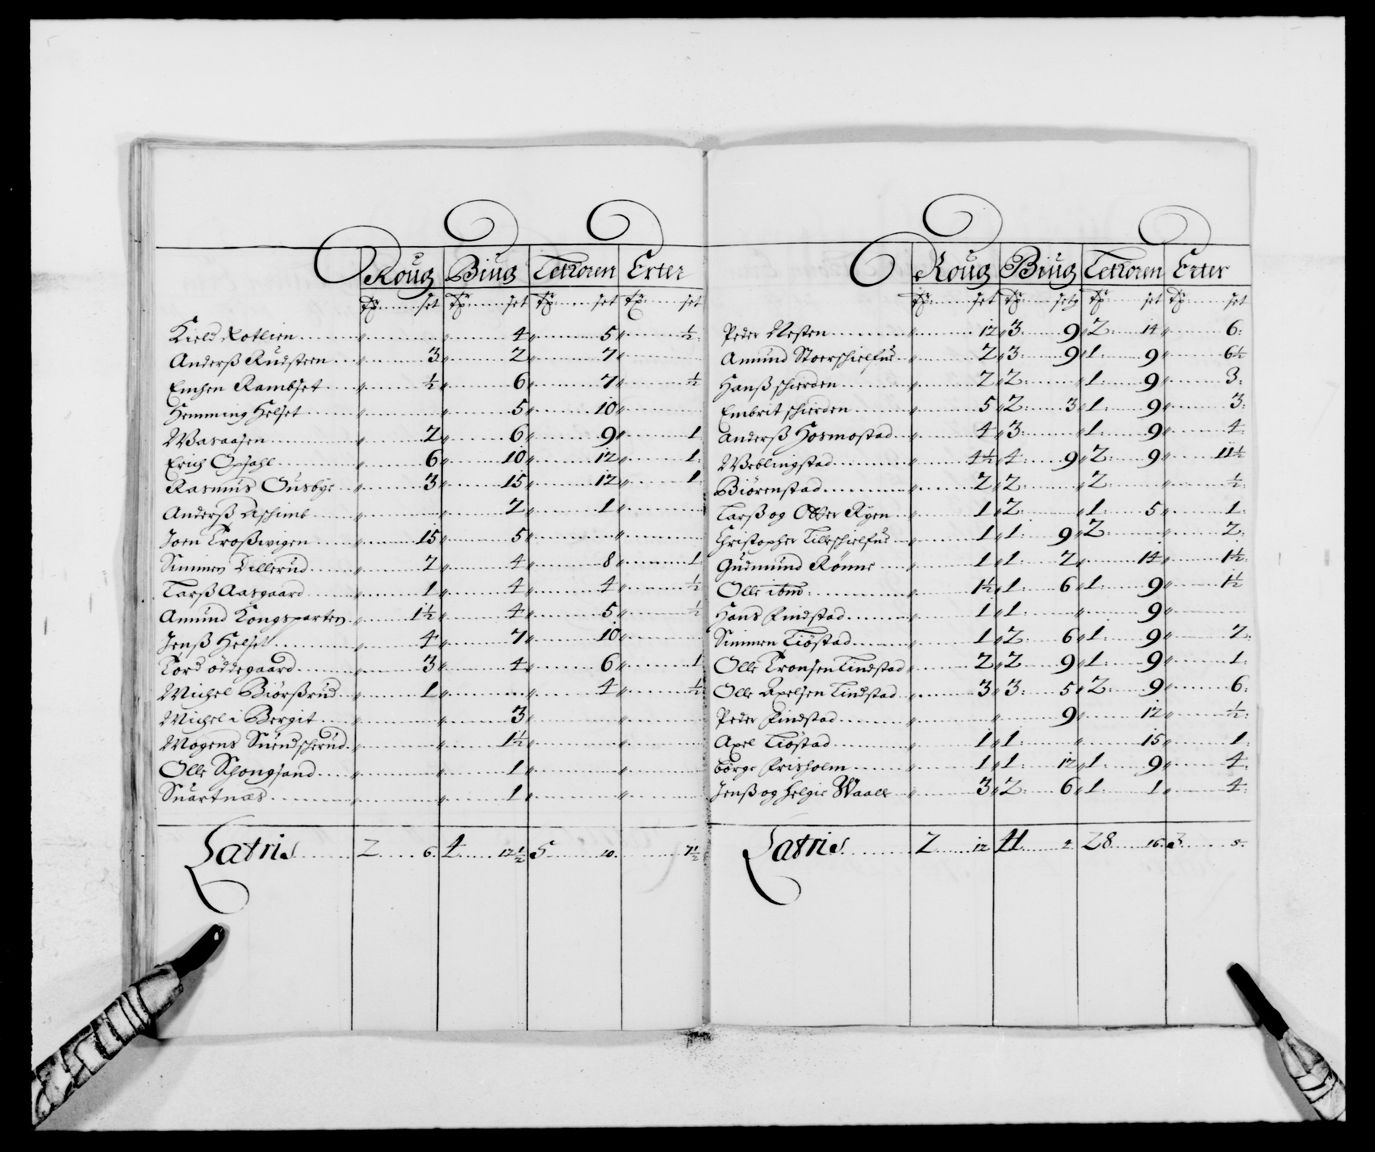 Roug Biug Tetkoren Erter
Tø set Tø set Tø set Tø set
Kield Rotlien " " 4 " 5 " ½
Anderß Rudsteen " 3 " 2 " 7 "
Einhen Rambset " ½ " 6 " 7 " ½
Hemming Helset " " 5 " 10 "
Waraasen " 2 " 6 " 9 " 1
Erich Opsahl " 6 " 10 " 12 " 1
Rasmus Ousbye " 3 " 15 " 12 " 1
Anderß Aschimb " " 2 " 1 "
Joen Troßwigen " 15 " 5 " "
Simmen Lillerud " 2 " 4 " 8 " 1
Larß Aasgaard " 1 " 4 " 4 " ½
Amund Kongsparten " 1½ " 4 " 5 " ½
Jenß Helset " 4 " 7 " 10 "
Tord oddegaard " 3 " 4 " 6 " 1
Michel Biørßrud " 1 " " 4 " ½
Michel i Bergit " " 3 " "
Mogens Suendscherud " " 1½ " "
Olle Schongsand " " 1 " "
Suartnæs " " 1 " "
Latris 2 6 4 12½ 5 10 7½
Roug Biug Tetkoren Erter
Tø set Tø set Tø set Tø set
Peder Nesten " 12 " 3 9 " 2 14 " 6
Amund Stoerschielfud " 2 " 3 9 " 1 9 " 6½
Hanß schierden " 2 " 2 " 1 9 " 3
Embrit schierden " 5 " 2 3 " 1 9 " 3
Anderß Hosmostad " 4 " 3 " 1 9 " 4
Weblingstad " 4½ " 4 9 " 2 9 " 11½
Biørenstad " 2 " 2 " 2 " " ½
Larß og Otter Ryen " 1 " 2 " 1 5 " 1
Christopher Lileschielfud " 1 " 1 9 " 2 " 2
Gudmund Rønne " 1 " 1 2 " 14 " 1½
Olle ibm " 1½ " 1 6 " 1 9 " 1½
Hans Findstad " 1 " 1 " " 9 "
Simmen Tiøstad " 1 " 2 6 " 1 9 " 2
Olle Tronsen Findstad " 2 " 2 9 " 1 9 " 1
Olle Axelsen Findstad " 3 " 3 5 " 2 9 " 6
Peder Findstad " " " 9 " 12 " ½
Axel Tiøstad " 1 " 1 " " 15 " 1
Børge Frisholm " 1 " 1 12 " 1 9 " 4
Jenß og Helgie Waale " 3 " 2 6 " 1 1 " 4
Latris 2 12 41 2 28 16 3 8